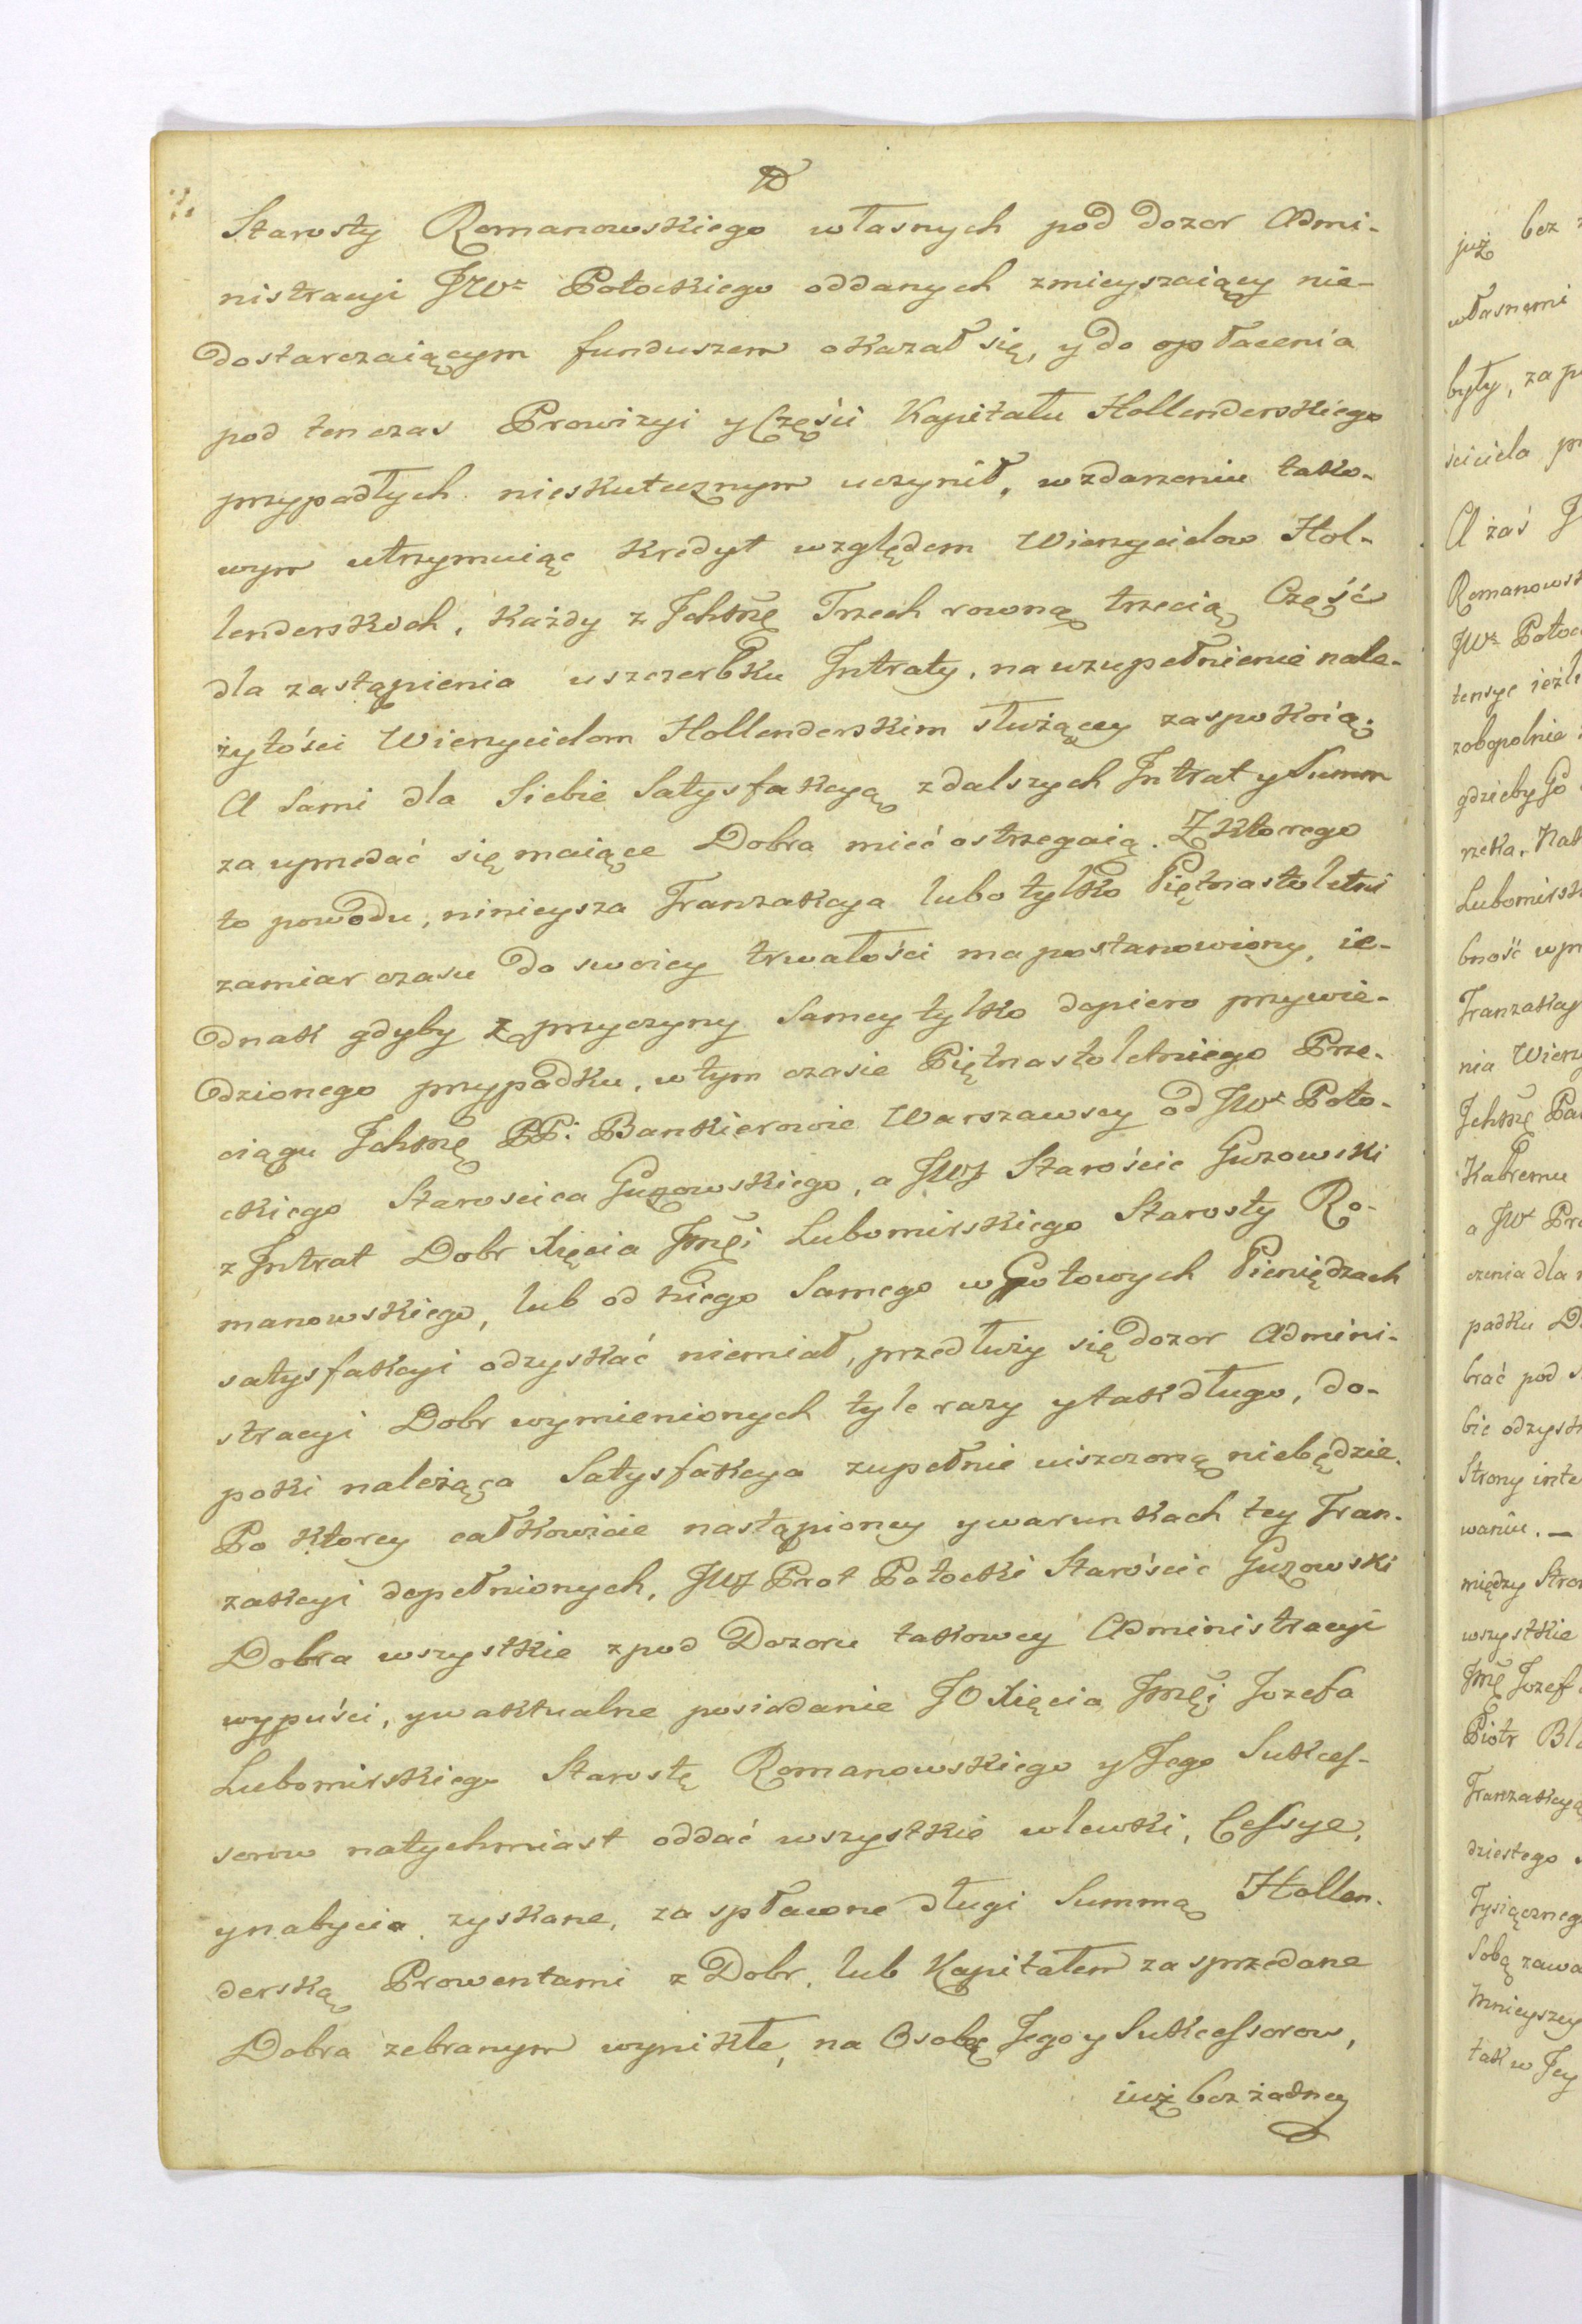 Starosty Romanowskiego własnych pod dozor Admi-
nistracyi JWo Potockiego oddanych zmieyszaiący nie-
dostarczaiącym funduszem okazał się, y do opłacenia
pod ten czas Prowizyi y Części Kapitału Hollenderskiego
przypadłych nieskutecznym uczynił, w zdarzeniu tako-
wym utrzymuiąc kredyt względem Wierzycielow Hol-
lenderskich, każdy z Ichmć Trzech rowną trzecią Część
dla zastąpienia uszczerbku Intraty, na uzupełnienie nale-
żytości Wierzycielom Hollenderskim służącey zaspokoią;
A Sami dla Siebie Satysfakcyą z dalszych Intrat y Summ
za uprzedać się maiące Dobra mieć ostrzegaią. Z ktorego
to powodu, ninieysza Tranzakcya lubo tylko Piętnastoletni
zamiar czasu do swoiey trwałości ma postanowiony, ie-
dnak gdyby z przyczyny Samey tylko dopiero przywie-
dzionego przypadku, w tym czasie Piętnastoletniego Prze-
ciągu Ichmć PP: Bankierowie Warszawscy od JWo Poto-
ckiego Starościca Guzowskiego, a JWJ Starościc Guzowski
z Intrat Dobr Xięcia Jmći Lubomirskiego Starosty Ro-
manowskiego, lub od niego Samego w gotowych Pieniędzach
satysfakcyi odzyskać niemiał, przedłuży się dozor Admini-
stracyi Dobr wymienionych tyle razy y tak długo, do-
poki należąca Satysfakcya zupełnie uiszczoną niebędzie.
Po ktorey całkowicie nastąpioney y warunkach tey Tran-
zakcyi dopełnionych, JWJ Prot Potocki Starościc Guzowski
Dobra wszystkie z pod Dozoru takowey Administracyi
wypuści, y w aktualne posiadanie JO Xięcia Jmći Jozefa
Lubomirskiego Starostę Romanowskiego y Jego Sukces-
sorow natychmiast oddać wszystkie wlewki, Cessye,
y nabycia zyskane, za spławne długi Summą Hollen-
derską Prowentami z Dobr, lub Kapitałem za sprzedane
Dobra zebranym wynikłe, na Osobę Jego y Sukcessorow,
iuż bez żadney
już bez
własnemi
były, za
ściciela
A zaś J
Romanowsk
JWo Potoc
tensye ieżli
zobopolnie
gdzieby Jo
rzeka. Nak
Lubomirsk
bność
Tranzakcy
nia Wierz
Ichmć Pa
Kabremu
a JWo Pr
czenia dla
padku D
brać pod
bie odzysk
Strony inte
waniu. —
między Stro
wszystkie
Jmć Jozef
Piotr Bl
Tranzakcyą
dziestego
Tysiączneg
Sobą zawa
Mnieyszey
tak w Jey